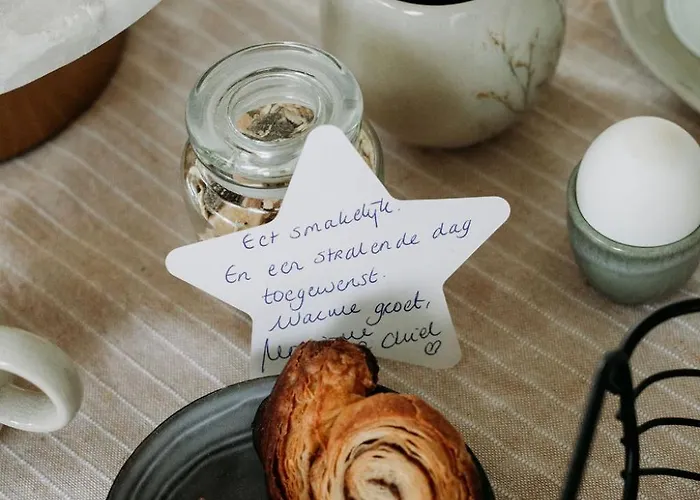 Eet smakelijk.
En een stralende dag
toegewenst.
Warme groet,
& Chiel ♡